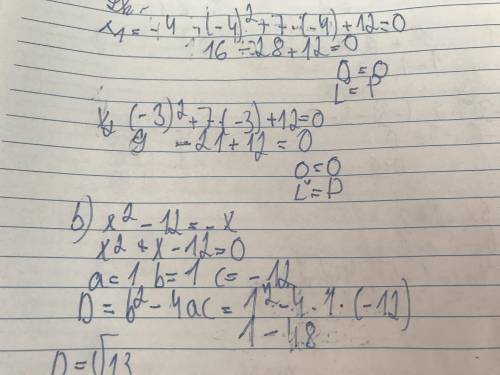 x₁ = -4 (-4)² + 7 · (-4) + 12 = 0
16 - 28 + 12 = 0
0 = 0
L = P
x₂ (-3)² + 7 · (-3) + 12 = 0
9 - 21 + 12 = 0
0 = 0
L = P
b) x² - 12 = - x
x² + x - 12 = 0
a = 1 b = 1 c = - 12
D = b² - 4ac = 1² - 4 · 1 · (-12)
1 - 48
D = √13